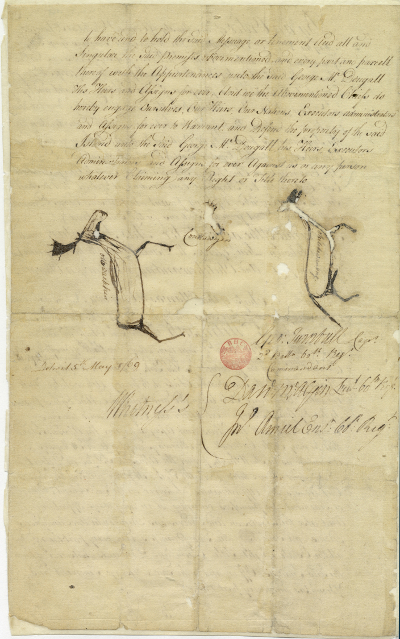 To have and to hold the said Messuage or tenement and all and
Singular the Said premises abovementioned and every part and parcell
thereof with the Appurtenances unto the Said George Mc Dougall
His Heirs and Assigns for ever And we the Abovementioned Chiefs do
hereby engage Ourselves Our Heirs Our Nations Executors administrators
and Assigns for ever to Warrant and Defend the property of the said
Island unto the Said George Mc Dougall his Heirs Executors
Administrators and Assigns for ever Against us or any person
whatever Claiming any Right or Title thereto
Detroit 5th May 1769
Geo: Turnbull Capt
2d Batt 60th Reg
Commandant
Witness's
Lieut 60th Reg
Jno Amiel Ensn 60th Regt